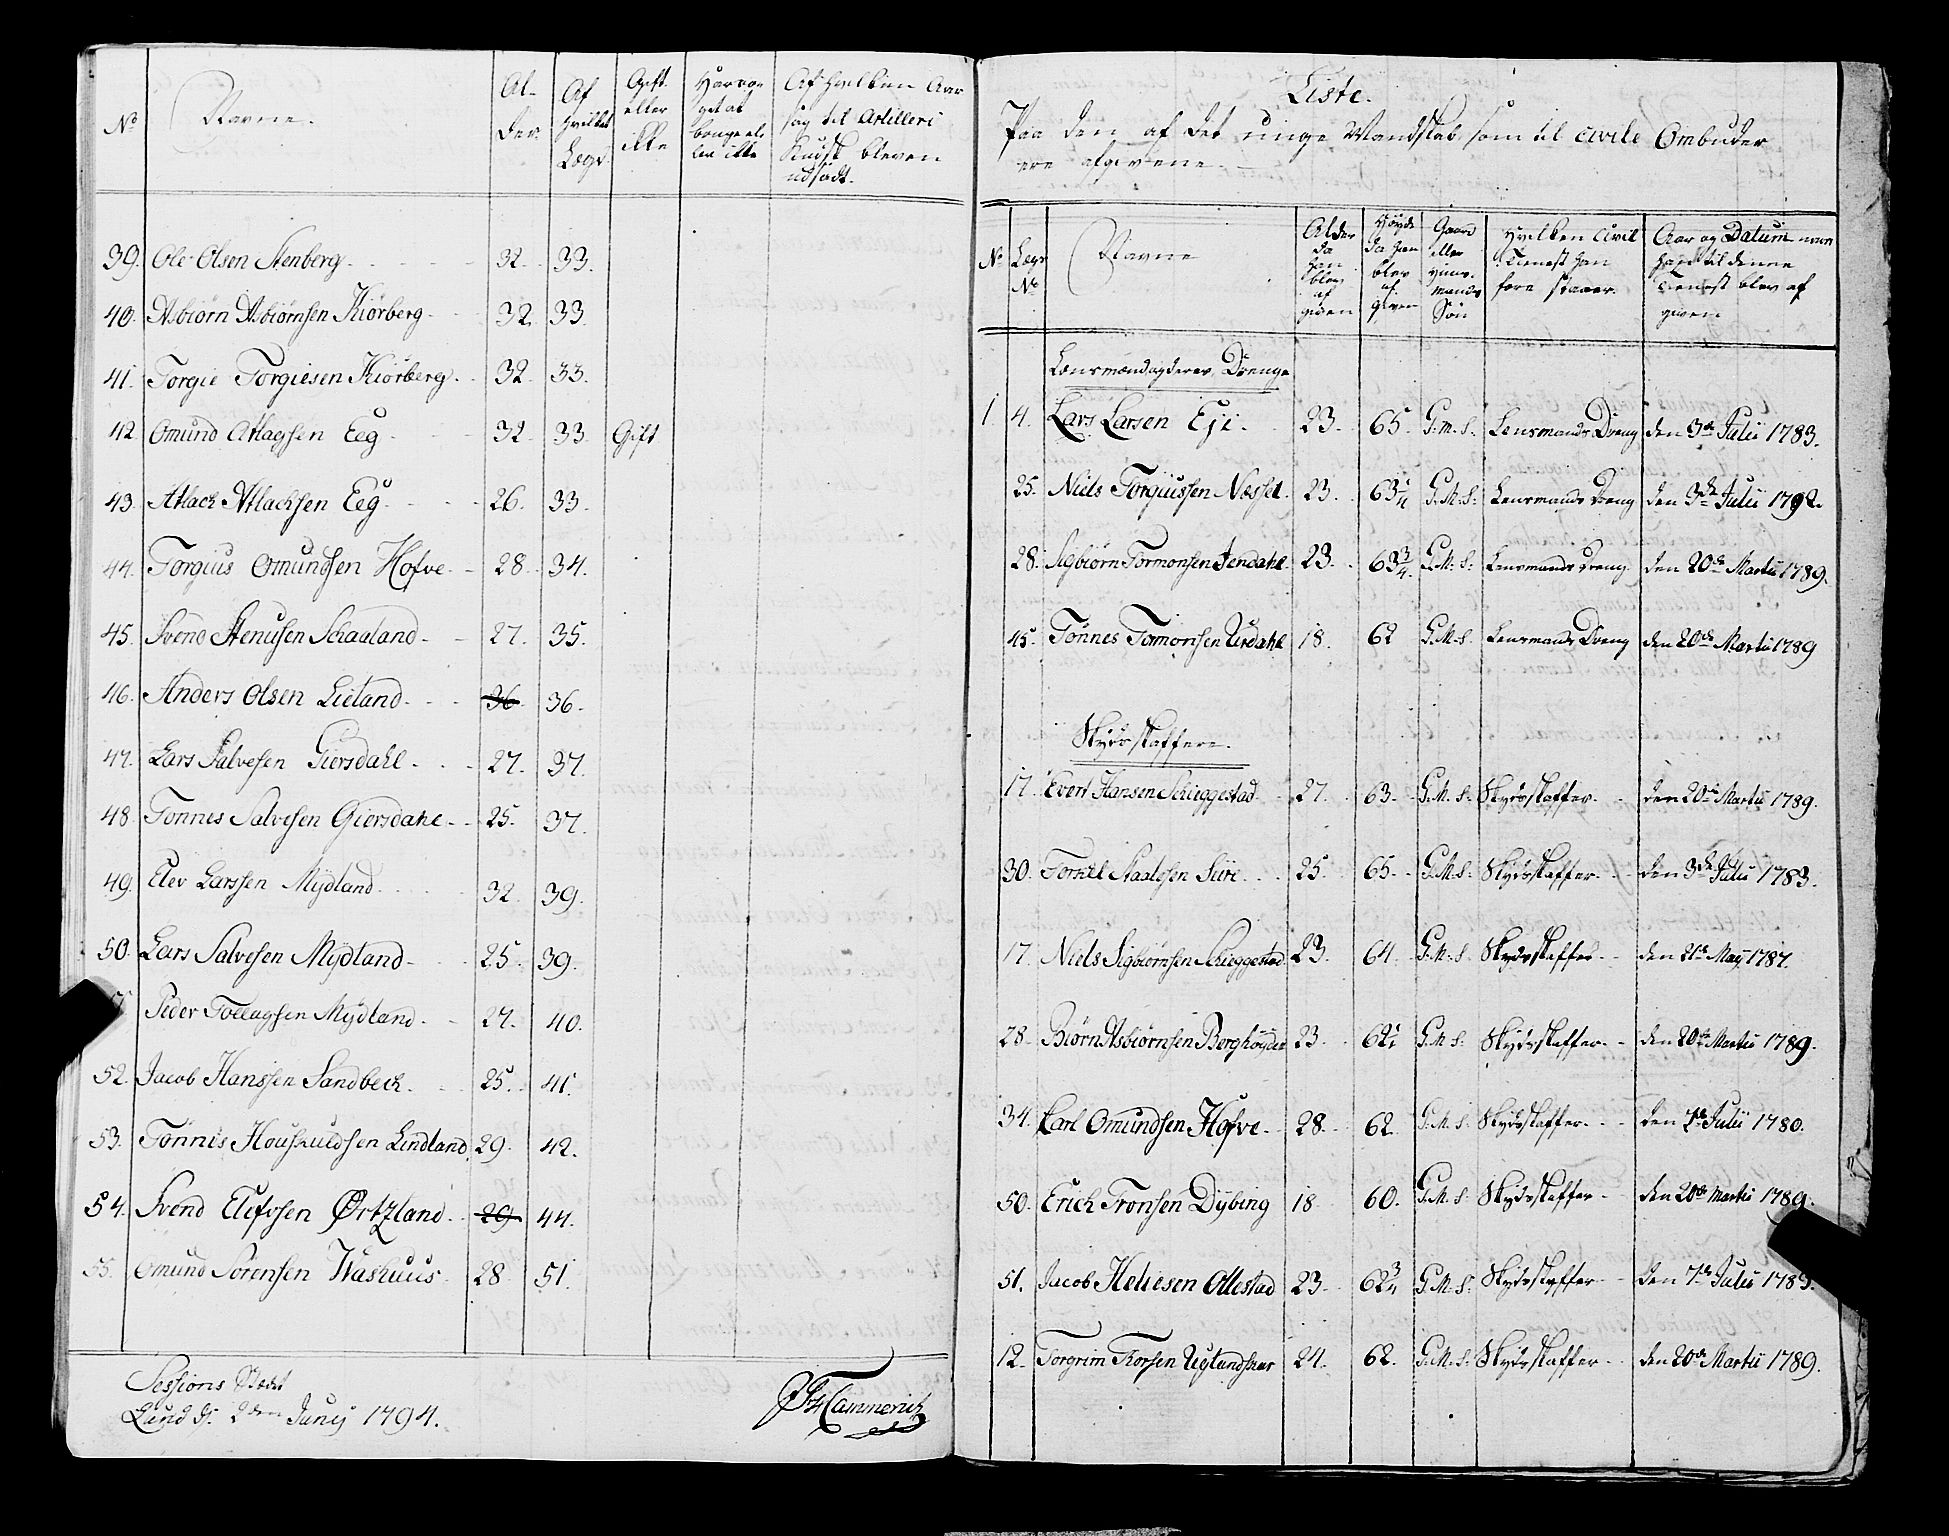 No Navne. Al- der Af hvilket Lægd Gift eller ikke Har no- get at bruge el- ler ikke Af hvilken Aar sag til Artilleri Kudsk bleven udsadt.
39. Ole Olsen Stenberg 32. 33.
40. Asbiørn Asbiørnsen Kiørberg 32. 33.
41. Torgie Torgiesen Kiörberg. 32. 33.
42 Omund Atlagsen Eeg 32 33. Gift
43. Atlach Atlachsen Eeg 26. 33.
44. Torgius Omundsen Hofve 28. 34.
45. Svend Stenusen Schaaland 27. 35.
46. Anders Olsen Lieland 36 36.
47. Lars Salvesen Giersdahl 27. 37.
48. Tonnes Salvesen Giersdahl 25. 37.
49. Elev Larssen Mydland 32. 39.
50. Lars Salvesen Mydland 25. 39.
Peder Tollagsen Mydland 27. 40.
52. Jacob Hanssen Sandbech 25. 41.
53. Tönnis Houskuldsen Lindland 29. 42.
54. Svend Elefsen Ørtzland 29 44.
55. Omund Sörensen Washuus 28 51.
Sessions Stædet
Lund d. 2den Junij 1794.
Cammerich
Liste.
Paa den af det unge Mandskab som til civile Ombuder
ere afgivene.
No Lægd No Navne Alder da han blev af given Høyde da han blev af given Gaard eller Huus- mands Søn Hvilken Civil Tienest han fore staaer. Aar og Datum naar han til denne Tienest blev af given
Lensmænd og deres Drenge
1 4. Lars Larsen Eje 23. 65. G. M. S. Lensmands Dreng den 3de Julii 1783.
25. Niels Torguissen Næsset 23. 63 1/4 G. M. S. Lensmands Dreng den 3de Julii 1792.
28. Sigbiørn Tormonsen Jendahl 23. 63 3/4. G. M. S. Lensmands Dreng den 20de Martii 1789.
45. Tönnes Tormonsen Urdahl 18. 62 G. M. S. Lensmands Dreng den 20de Martii 1789
Skydsskaffere.
17. Evert Hansen Schieggestad 27. 63. G. M. S. Skydsskaffer den 20de Martii 1789.
30. Torkel Staalesen Siire 25. 65. G. M. S. Skydsskaffer den 3de Julii 1783.
17. Niels Sigbiørnsen Schieggestad 23. 64. G. M. S. Skydsskaffer den 21de May 1787.
28. Biørn Asbiørnsen Berghøyden 23. 62 1/4 G. M. S. Skydsskaffer den 20de Martii 1789.
34. Carl Omundsen Hofve 28. 62. G. M. S. Skydsskaffer den 7de Julii 1780.
50. Erich Tronsen Dybing 18. 60. G. M. S. Skydsskaffer den 20de Martii 1789.
51. Jacob Heliesen Ollestad 23. 62 3/4 G. M. S. Skydsskaffer den 7de Julii 1785.
12. Torgrim Thorsen Uglandskar 24. 62. G. M. S. Skydsskaffer den 20de Martii 1789.